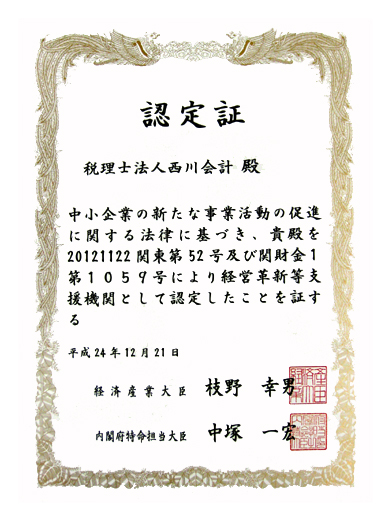 認定証
税理士法人西川会計 殿
中小企業の新たな事業活動の促進
に関する法律に基づき、貴殿を
20121122関東第52号及び関財金1
第1059号により経営革新等支
援機関として認定したことを証す
る
平成24年12月21日
経済産業大臣 枝野 幸男
内閣府特命担当大臣 中塚 一宏